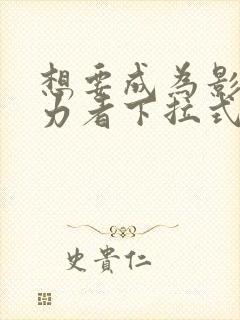 想要成为影
力者下拉式
史貴仁